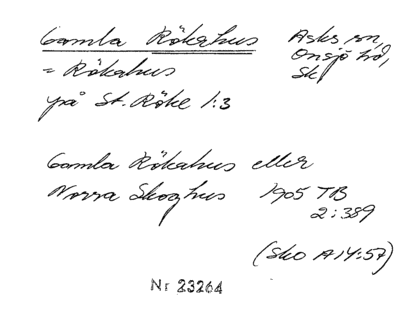 Gamla Rökahus Asks sn,
= Rökahus Onsjö hd,
på St. Röke 1:3 Sk
Gamla Rökahus eller
Norra Skoghus 1905 TB
2:389
(Sko A14:57)
Nr 23264